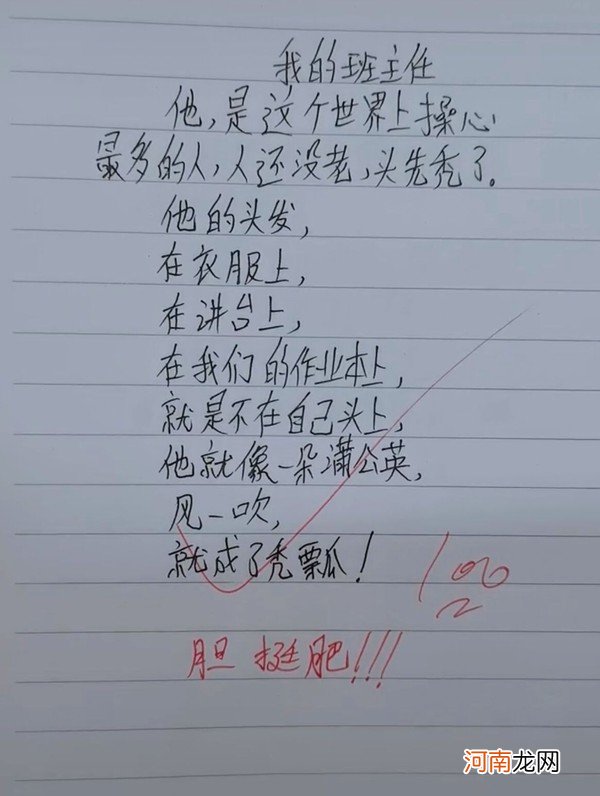 我的班主任
他,是这个世界上操心
最多的人,人还没老,头先秃了。
他的头发,
在衣服上,
在讲台上,
在我们的作业本上,
就是不在自己头上,
他就像一朵蒲公英,
风一吹,
就成了秃票瓜!
100
胆挺肥!!!
河南龙网